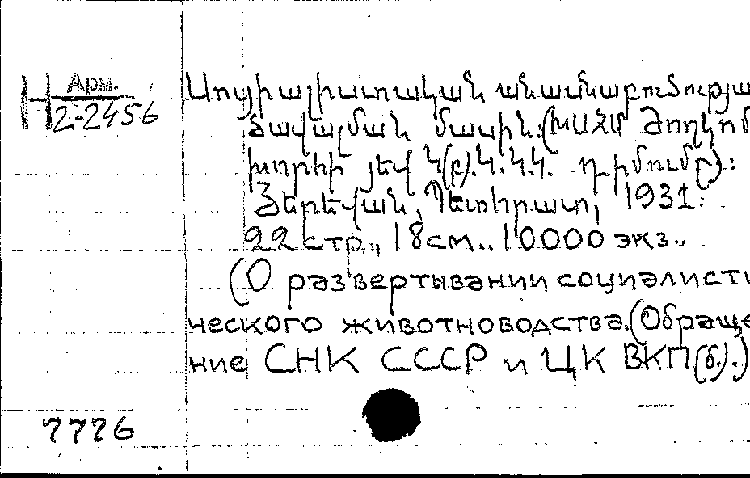 Н Арм.
2-2456
Սոցիալիստական անասնաբուծությա
ծավալման մասին. (ԽՍՀՄ Ժողկոմ
խորհի յեվ Կ(բ).Կ.Կ.Կ. դիմումը):
Յերեվան, Պետհրատ, 1931.
22 стр., 18 см.. 10000 экз..
(О развертывании социалисти
ческого животноводства. (Обраще
ние СНК СССР и ЦК ВКП(б).)
7776